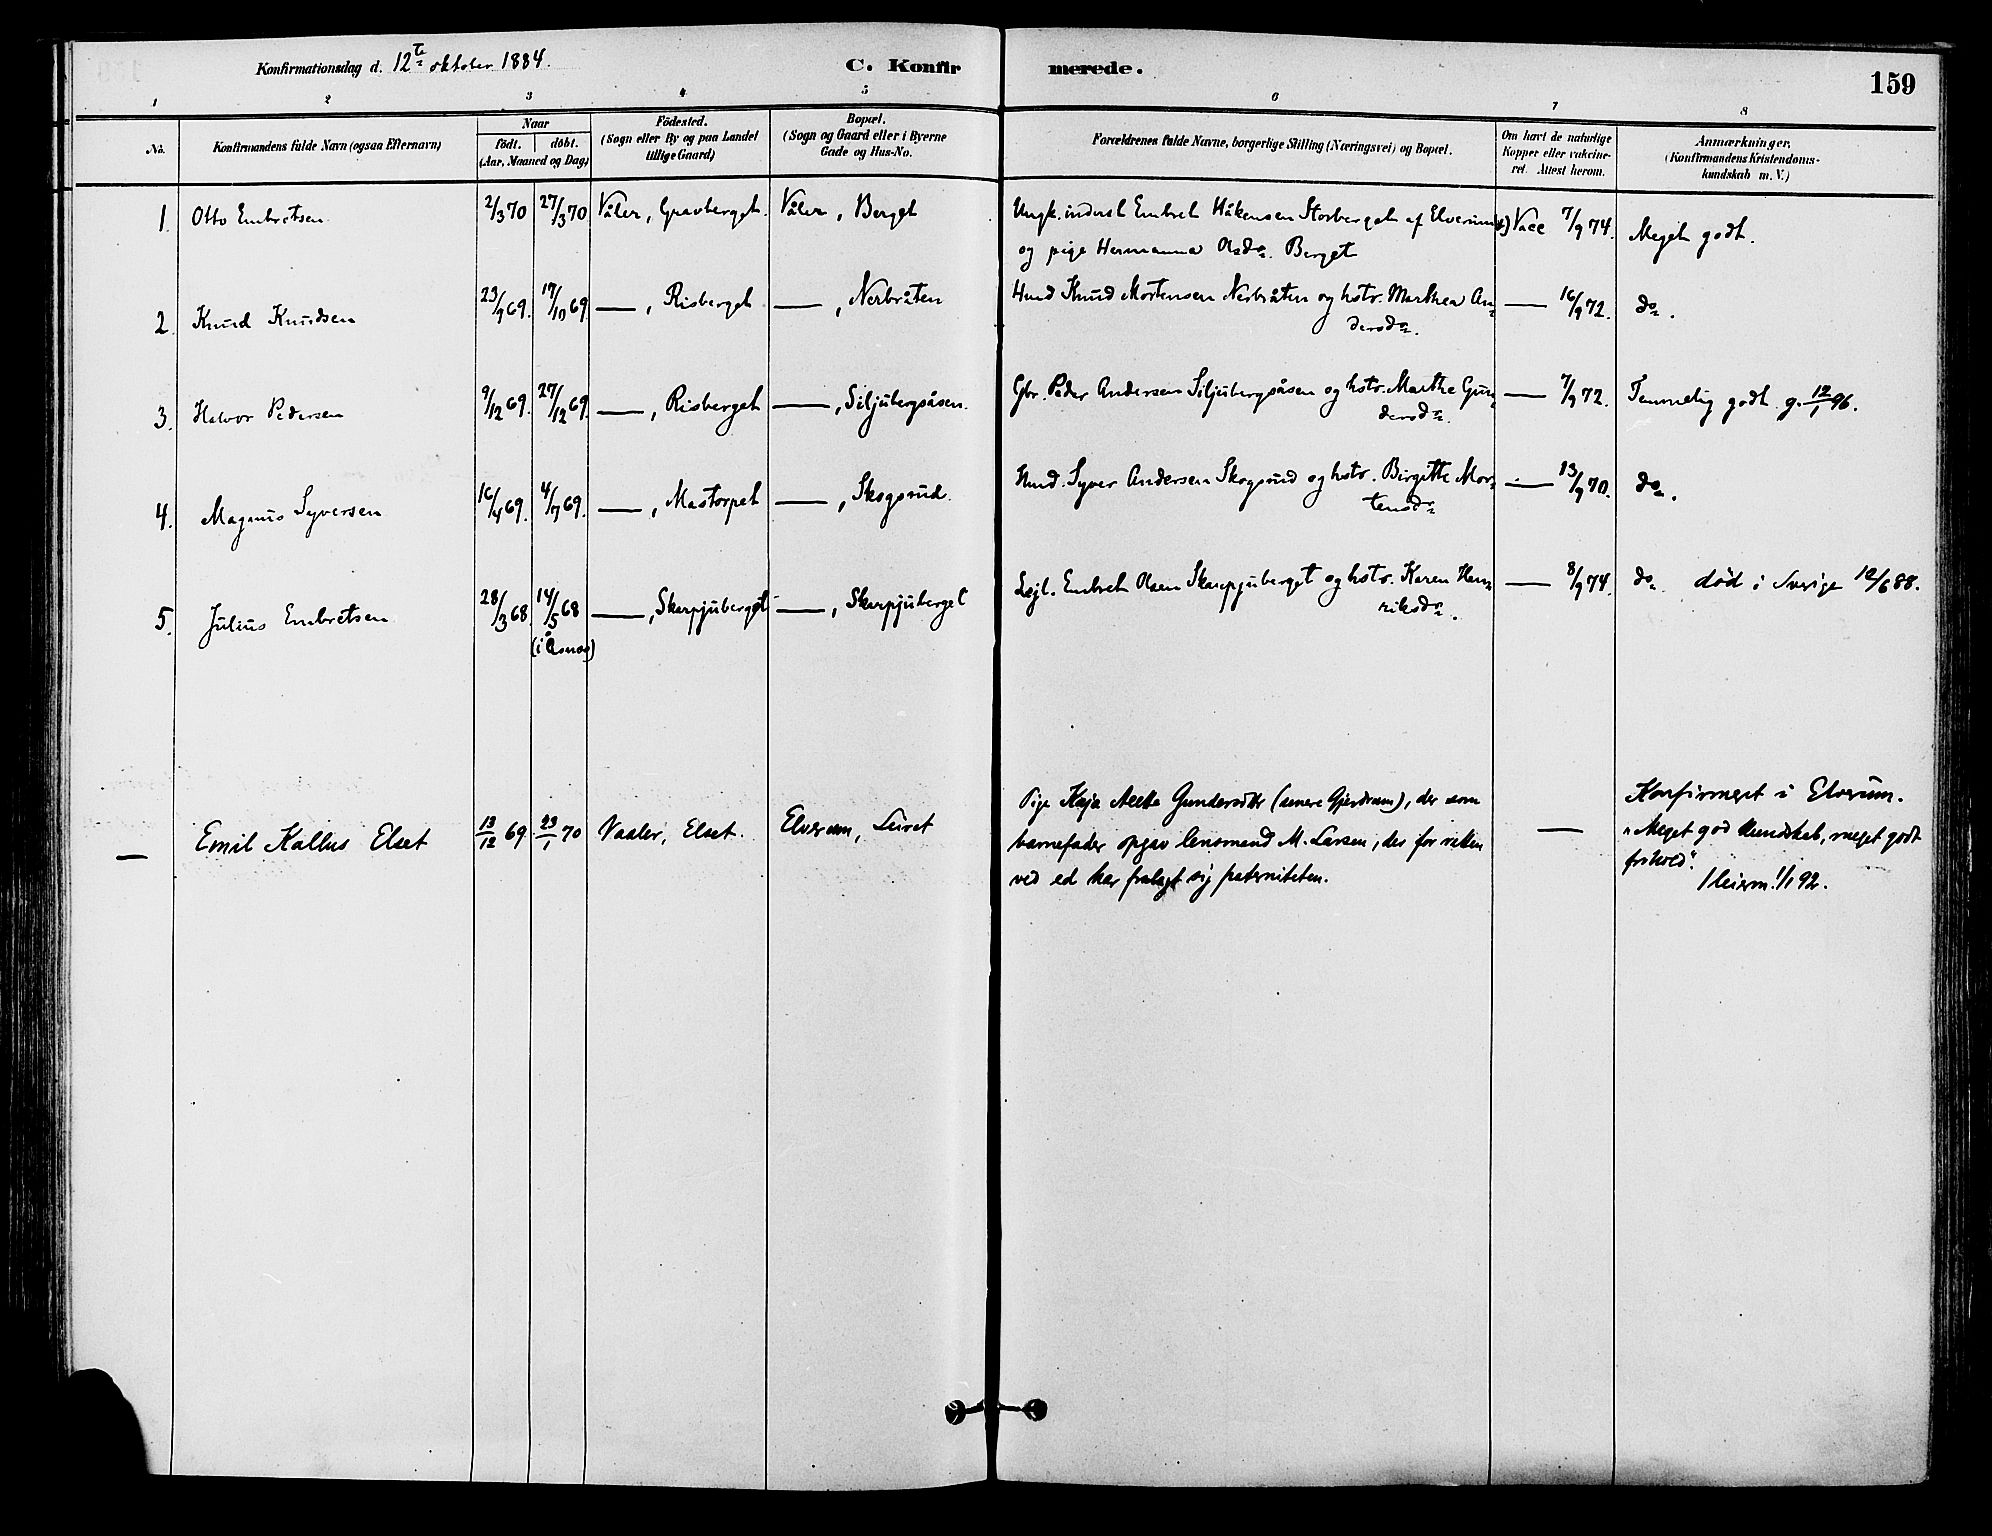 Konfirmationsdag d. 12te oktober 1884.
C. Konfirmerede.
159
1 2 3 4 5 6 7 8
No.
Konfirmandens fulde Navn (ogsaa Efternavn)
Naar
födt. döbt.
(Aar, Maaned og Dag)
Födested.
(Sogn eller By og paa Landet
tillige Gaard)
Bopæl.
(Sogn og Gaard eller i Byerne
Gade og Hus-No.
Forældrenes fulde Navne, borgerlige Stilling (Næringsvei) og Bopæl.
Om havt de naturlige
Kopper eller vakcine-
ret. Attest herom.
Anmærkninger.
(Konfirmandens Kristendoms-
kundskab m. V.)
1. Otto Embretsen 2/3 70 27/3 70 Våler, Gravberget. Våler, Berget Ungk. inderst Embret Håkensen Storberget af Elverum Vacc 7/9 74. Meget godt.
og pige Hermanna Olsdr. Berget
2. Knud Knudsen 23/9 69. 17/10 69 —, Risberget —, Nerbråten Husmd Knud Mortensen Nerbråten og hstr. Marthea An- — 16/9 72. do.
dersdr.
3. Halvor Pedersen 9/12 69. 27/12 69. —, Risberget —, Siljubergsåsen. Gbr. Peder Andersen Siljubergsåsen og hstr. Marthe Gun- — 7/9 72. Temmelig godt. g. 12/1 96.
dersdr.
4. Magnus Syversen 16/4 69. 4/7 69. —, Mastorpet —, Skogsrud. Husmd. Syver Andersen Skogsrud og hstr. Birgitte Mor- — 13/9 70. do.
tensdr.
5. Julius Embretsen 28/3 68. 14/5 68 —, Skarpjuberget —, Skarpjuberget Lejl. Embret Olsen Skarpjuberget og hstr. Karen Hen- — 8/9 74. do. död i Sverige 12/6 88.
(i Åsnes) riksdr.
— Emil Kallus Elset 13/12 69 23/1 70 Vaaler, Elset. Elverum, Leiret
Pige Kaja Aletta Gundersdtr (senere Gjerdrum), der som
barnefader opgav lensmand M. Larsen, der for retten
ved ed har fralagt sig paterniteten.
—
Konfirmeret i Elverum.
"Meget god kundskab, meget godt
forhold".
1/1 92.